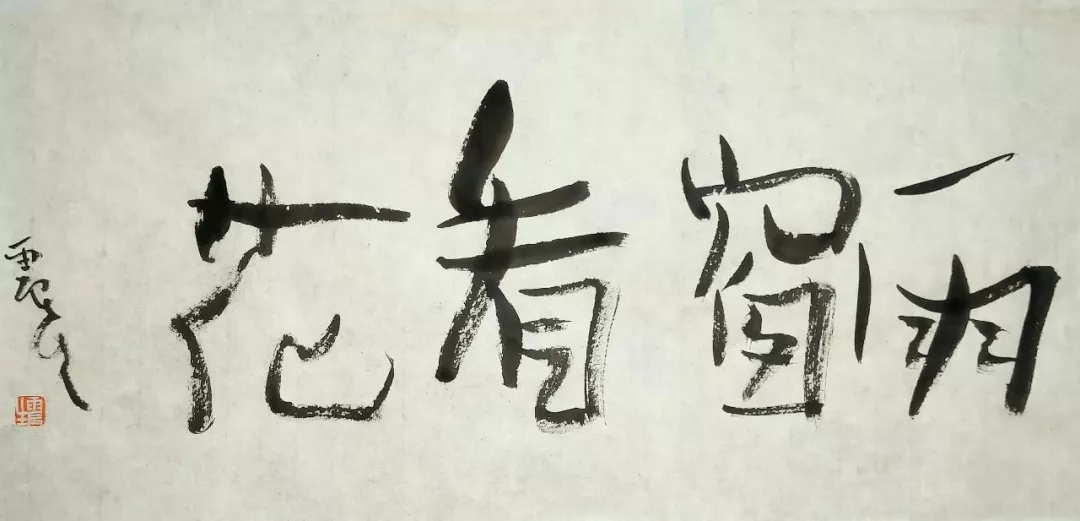 雨窗看花